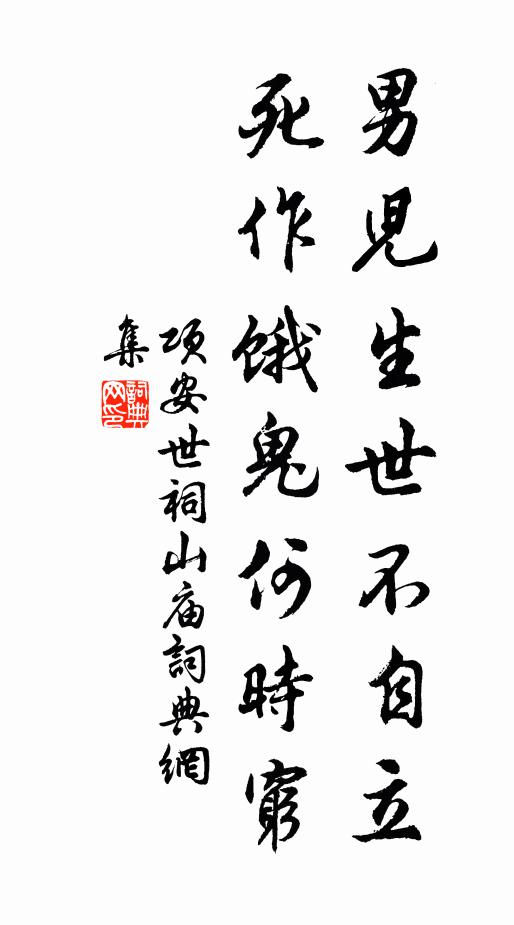 男兒生世不自立
死作餓鬼何時窮
項安世祠山庙詞典網
集
詞典
网印